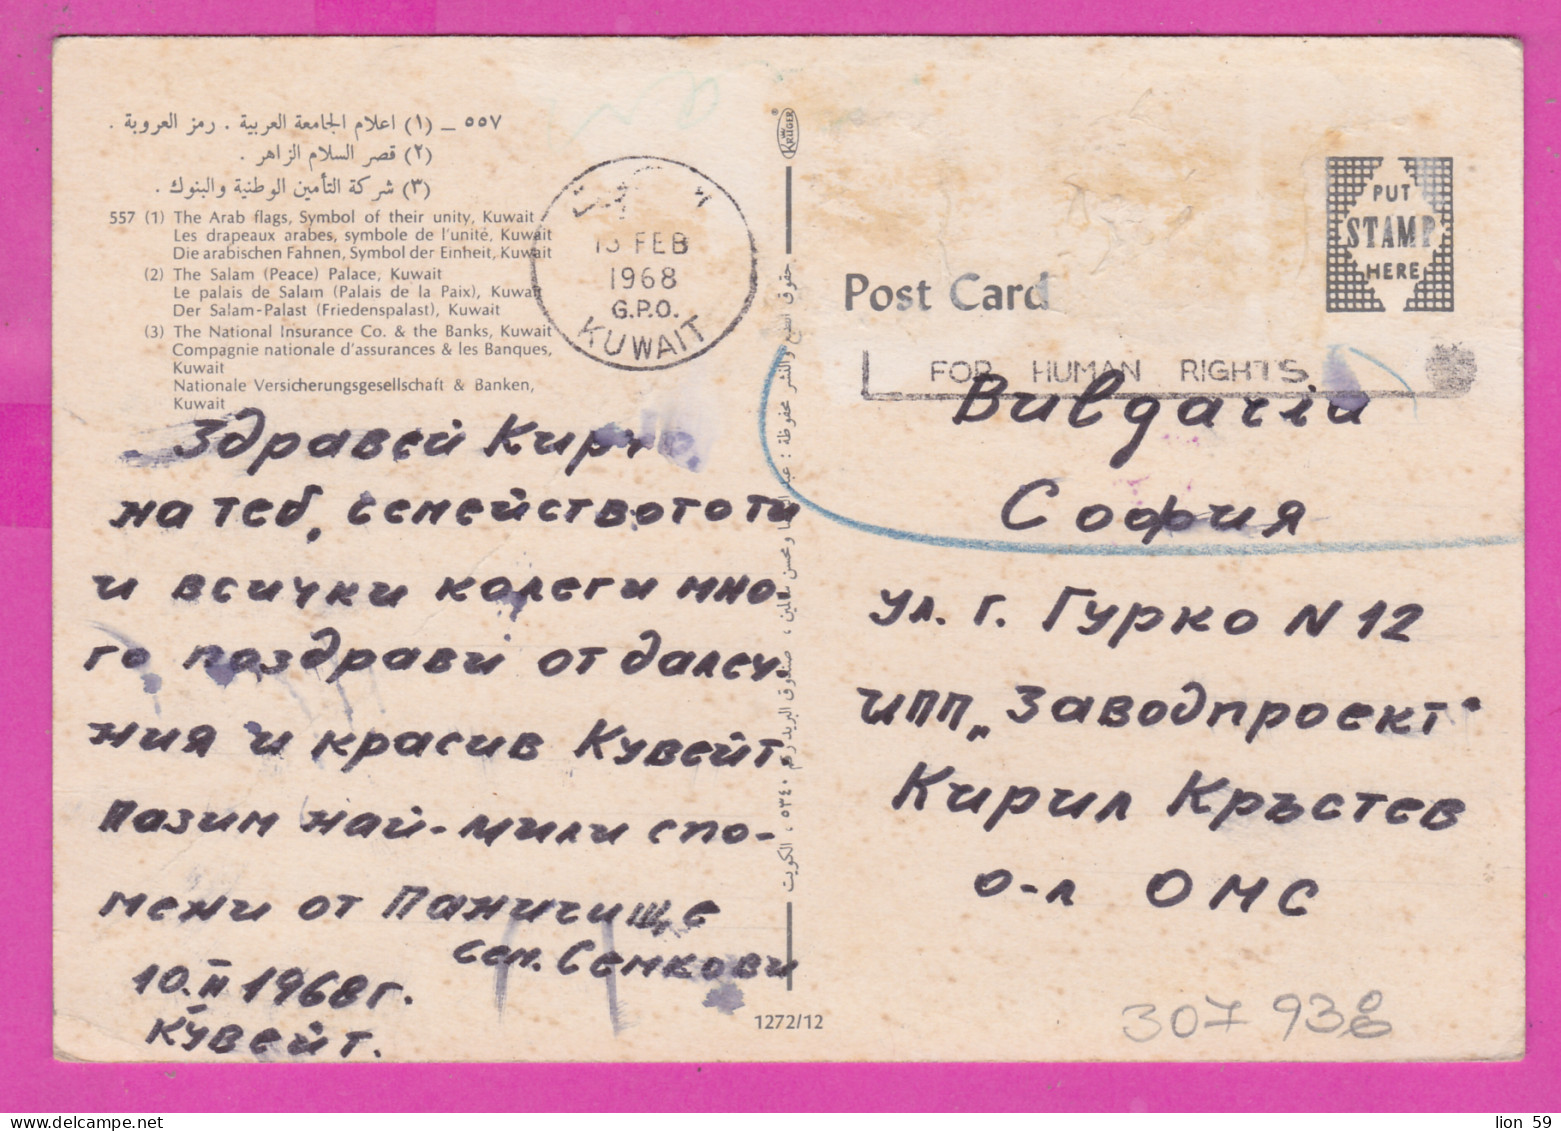 ٥٥٧ – (١) اعلام الجامعة العربية . رمز العروبة .
(٢) قصر السلام الزاهر .
(٣) شركة التأمين الوطنية والبنوك .
557 (1) The Arab flags, Symbol of their unity, Kuwait
Les drapeaux arabes, symbole de l'unité, Kuwait
Die arabischen Fahnen, Symbol der Einheit, Kuwait
(2) The Salam (Peace) Palace, Kuwait
Le palais de Salam (Palais de la Paix), Kuwait
Der Salam-Palast (Friedenspalast), Kuwait
(3) The National Insurance Co. & the Banks, Kuwait
Compagnie nationale d'assurances & les Banques,
Kuwait
Nationale Versicherungsgesellschaft & Banken,
Kuwait
13 FEB
1968
G.P.O.
KUWAIT
Здравей
на теб, семейството ти
и всички колеги мно-
го поздрави от далеч-
ния и красив Кувейт.
Пазим най-мили спо-
мени от Паничище
сем. Семкови
10.II 1968 г.
Кувейт.
KRÜGER
حقوق الطبع والنشر محفوظة : ومحسن صندوق البريد رقم ٥٣٤٠ ، الكويت
1272/12
PUT
STAMP
HERE
Post Card
FOR HUMAN RIGHTS
Bulgaria
София
ул. г. Гурко N 12
ИПП „Заводпроект"
Кирил Кръстев
о-л ОМС
307938
lion 59